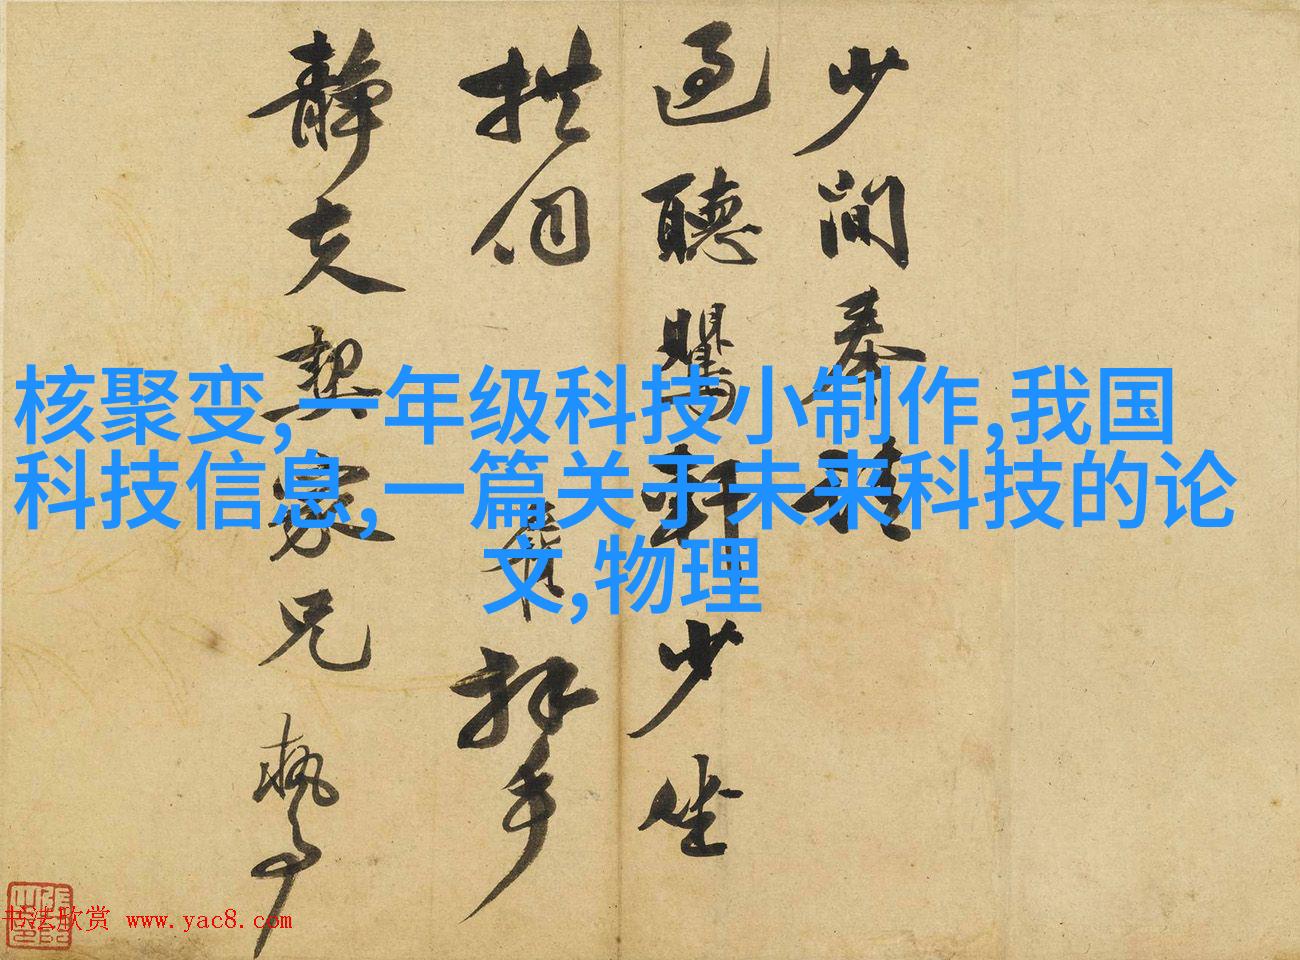 少間奉
過聽軒少坐
拱伺拜手
靜夫契家兄執事
核聚变,一年级科技小制作,我国
科技信息,一篇关于未来科技的论
文,物理
书法欣赏 www.yac8.com